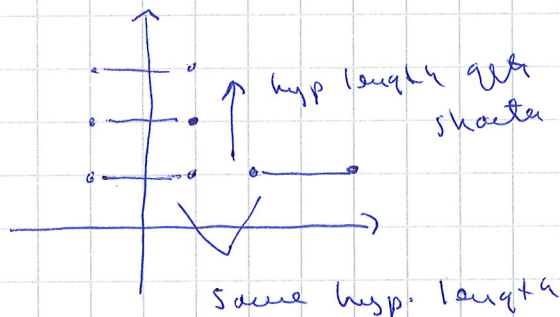 hyp length gets
shorter
same hyp. length